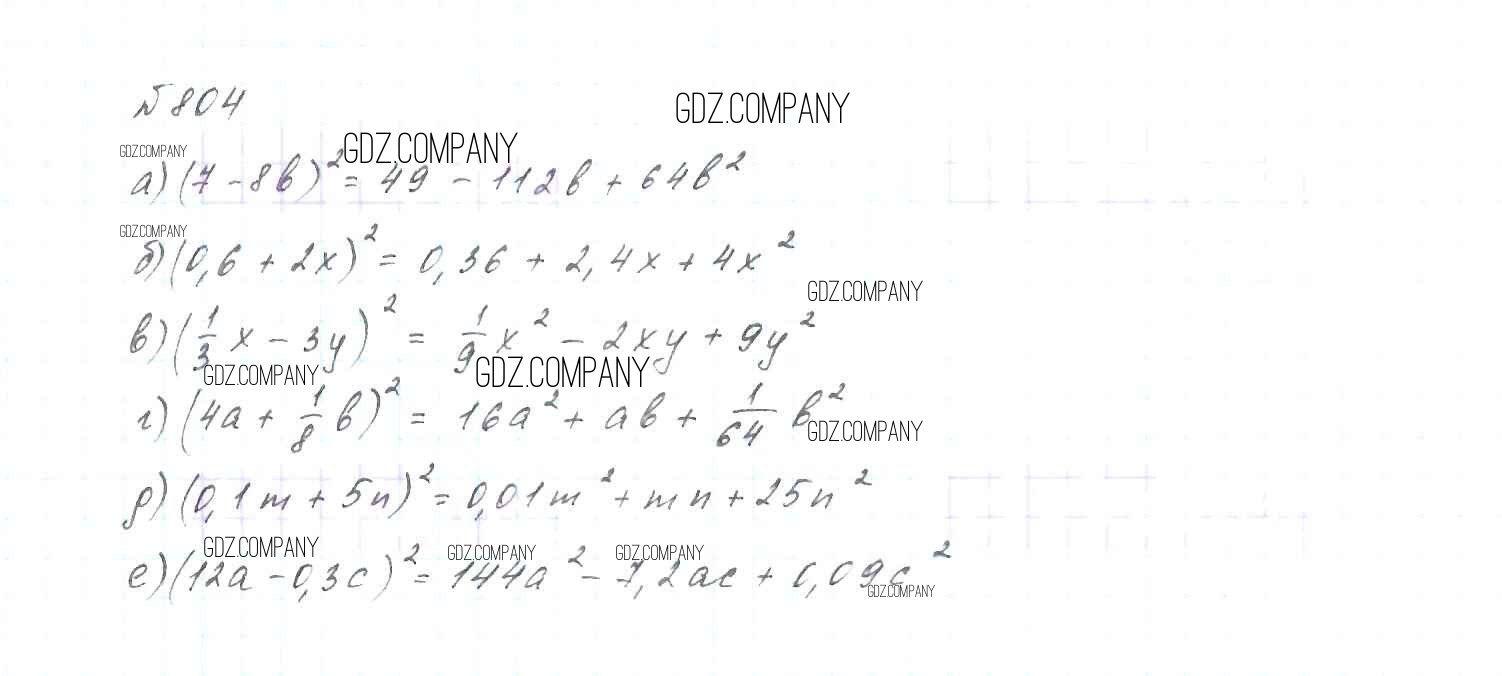 №804
GDZ.COMPANY
GDZ.COMPANY
GDZ.COMPANY
а) (7 - 8b)² = 49 - 112b + 64b²
GDZ.COMPANY
б) (0,6 + 2x)² = 0,36 + 2,4x + 4x²
GDZ.COMPANY
в) (1/3 x - 3y)² = 1/9 x² - 2xy + 9y²
GDZ.COMPANY
GDZ.COMPANY
г) (4a + 1/8 b)² = 16a² + ab + 1/64 b²
GDZ.COMPANY
д) (0,1m + 5n)² = 0,01m² + mn + 25n²
GDZ.COMPANY
GDZ.COMPANY
GDZ.COMPANY
е) (12a - 0,3c)² = 144a² - 7,2ac + 0,09c²
GDZ.COMPANY